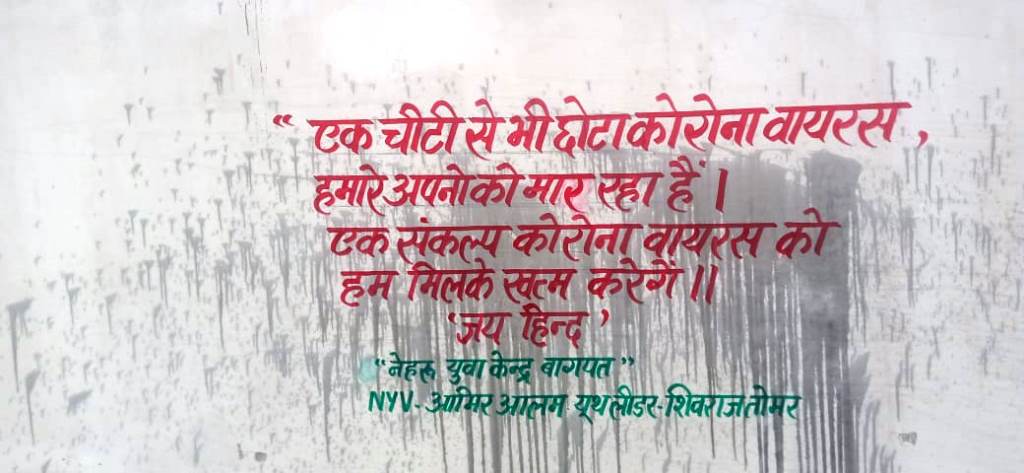 “ एक चीटी से भी छोटा कोरोना वायरस ,
हमारे अपनो को मार रहा हैं |
एक संकल्प कोरोना वायरस को
हम मिलके खत्म करेगें ||
‘जय हिन्द’
“नेहरू युवा केन्द्र बागपत”
NYV- आमिर आलम यूथ लीडर-शिवराज तोमर